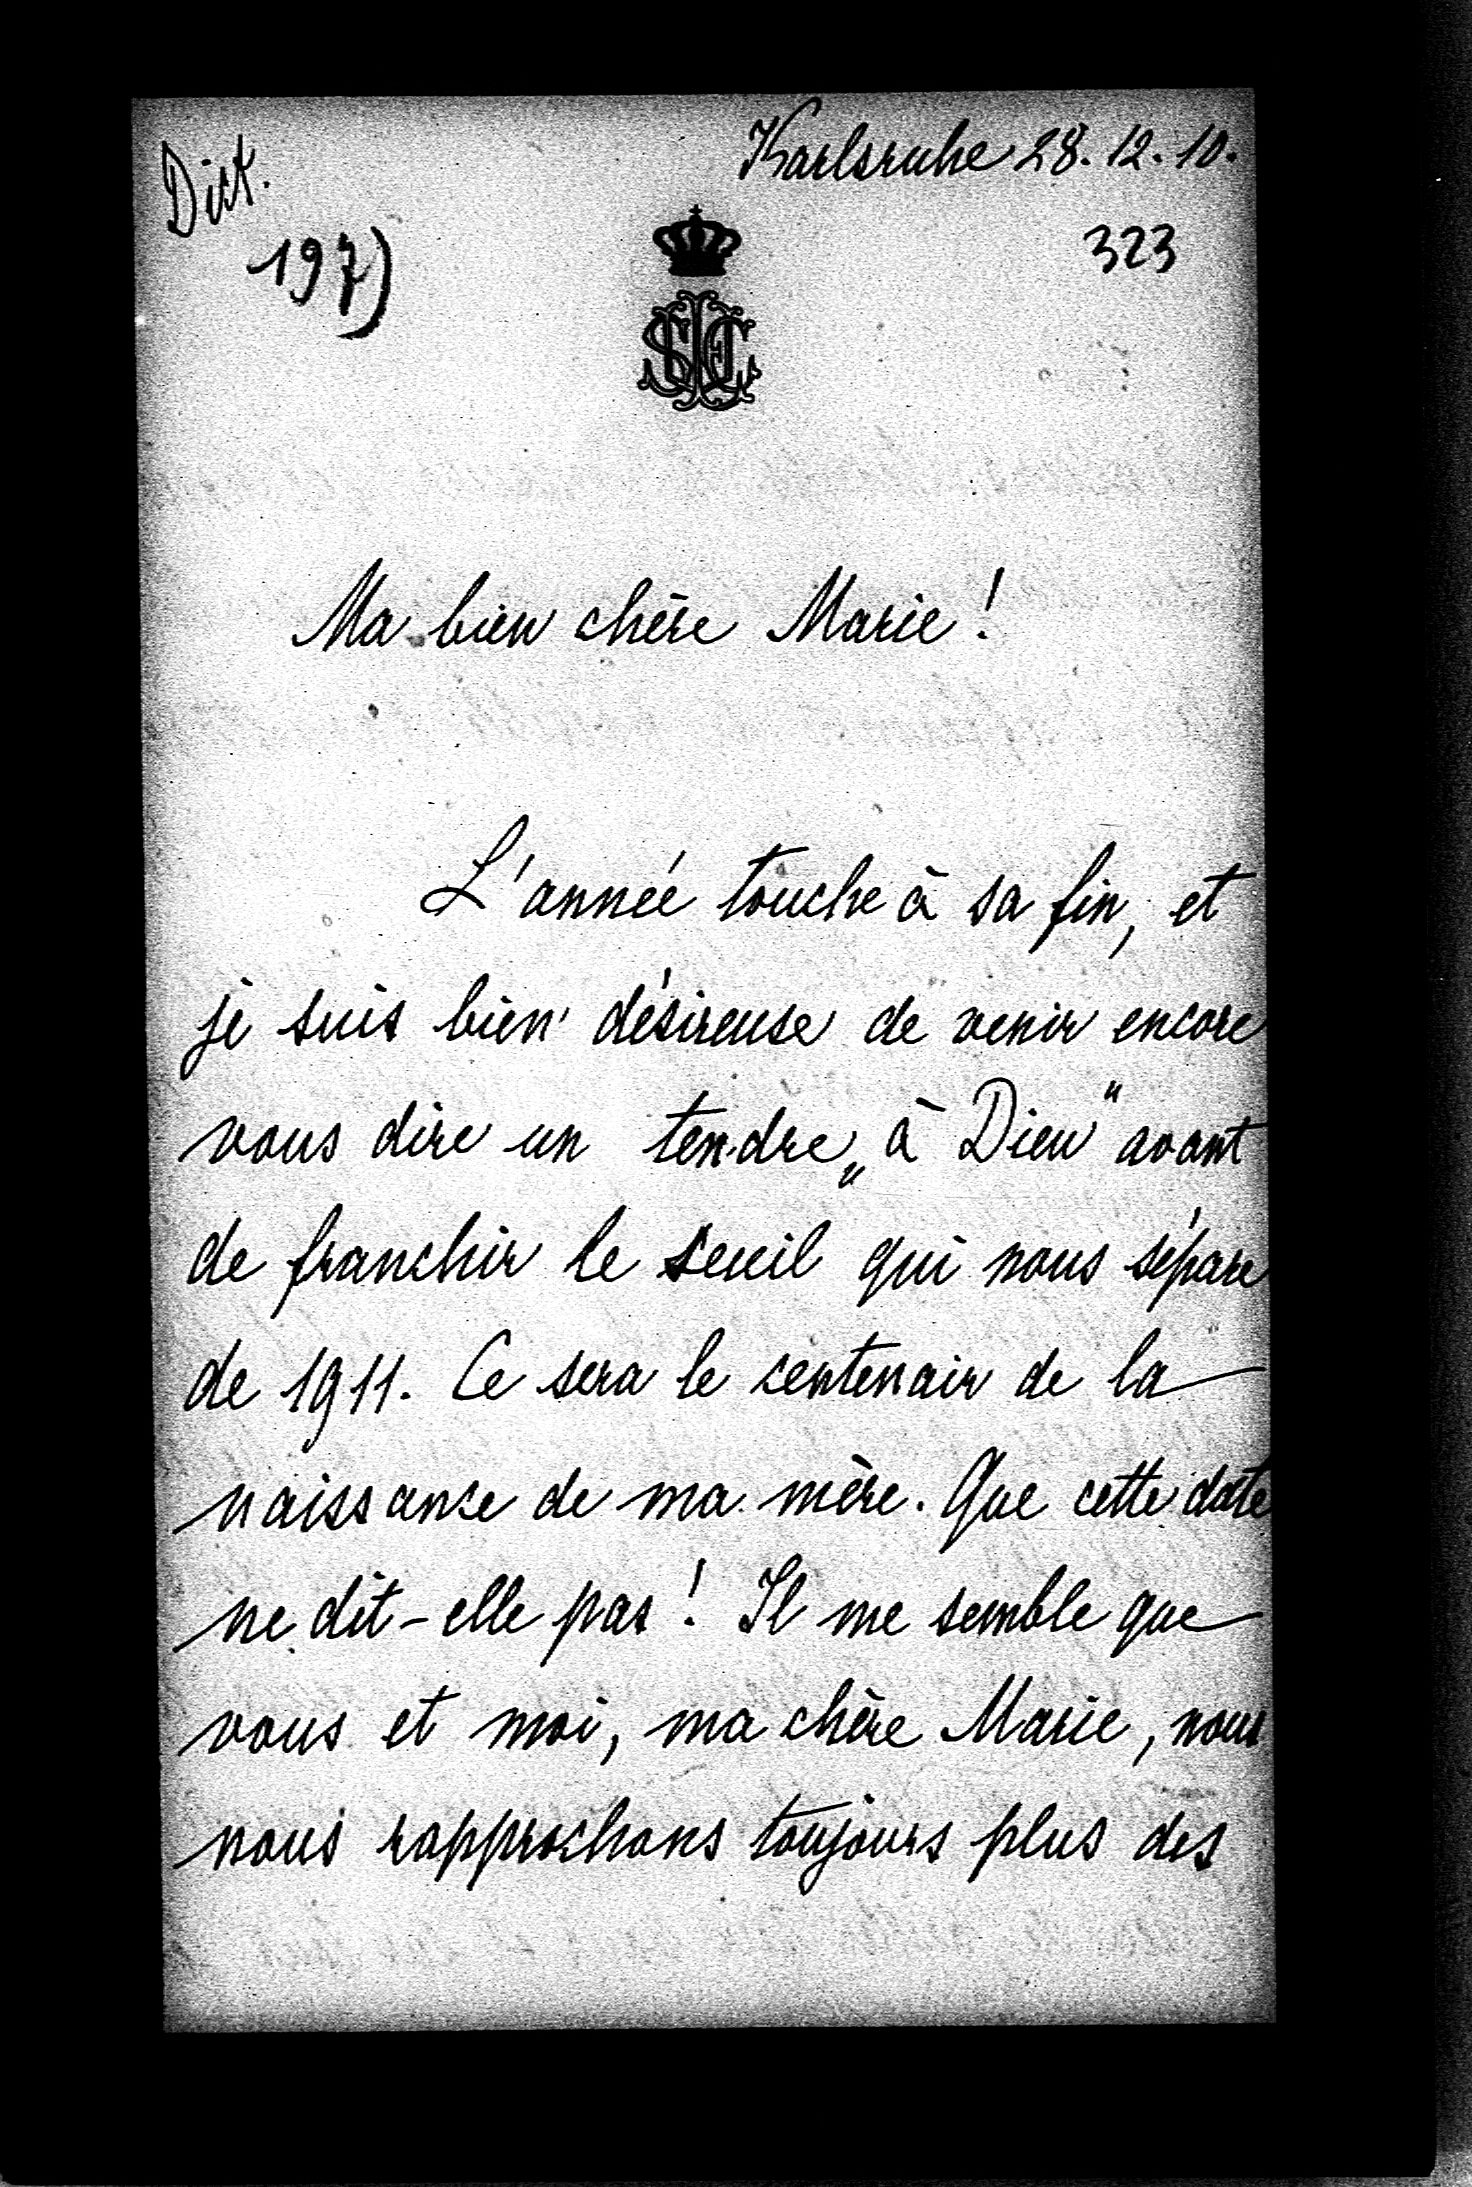 Karlsruhe 28.12.10.
Dikt.
197)
323
Ma bien chère Marie!
L'année touche à sa fin, et
je suis bien désireuse de venir encore
vous dire un tendre „à Dieu“ avant
de franchir le seuil qui nous sépare
de 1911. Ce sera le centenair de la
naissance de ma mère. Que cette date
ne dit-elle pas! Il me semble que
vous et moi, ma chère Marie, nous
nous rapprochons toujours plus des